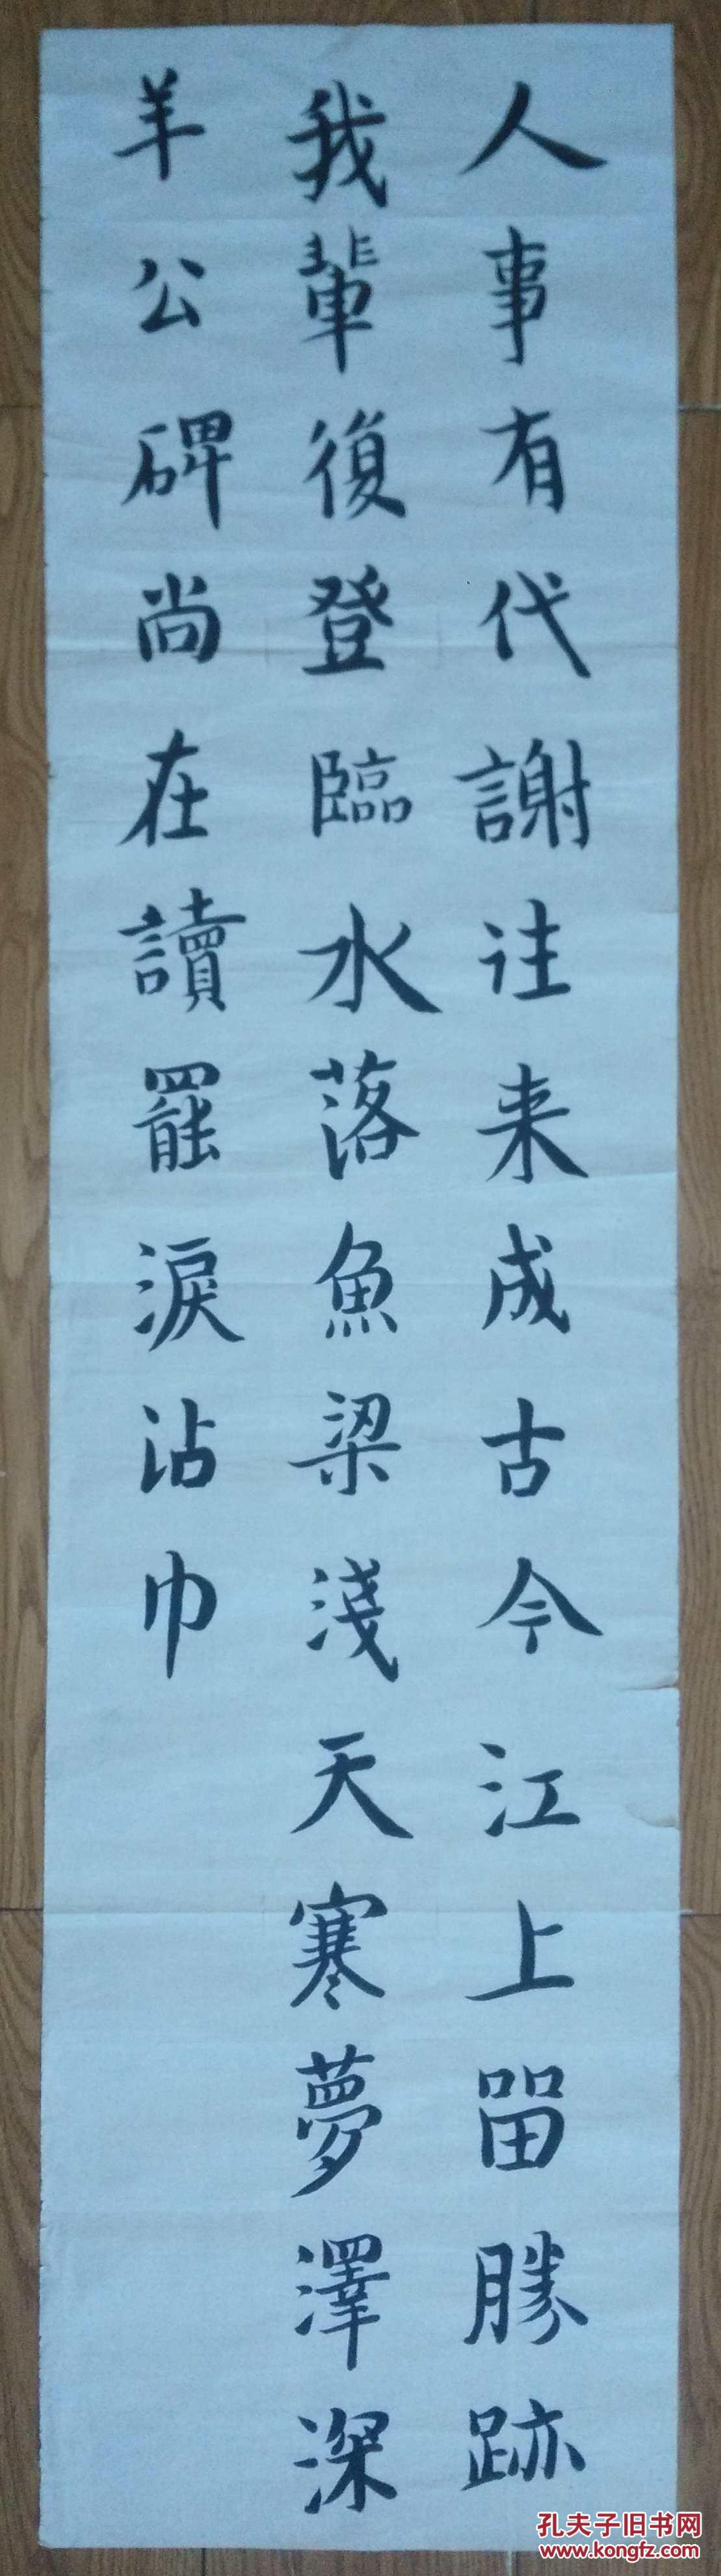 人事有代謝往来成古今江上留勝跡
我輩復登臨水落魚梁淺天寒夢澤深
羊公碑尚在讀罷淚沾巾
孔夫子旧书网
www.kongfz.com